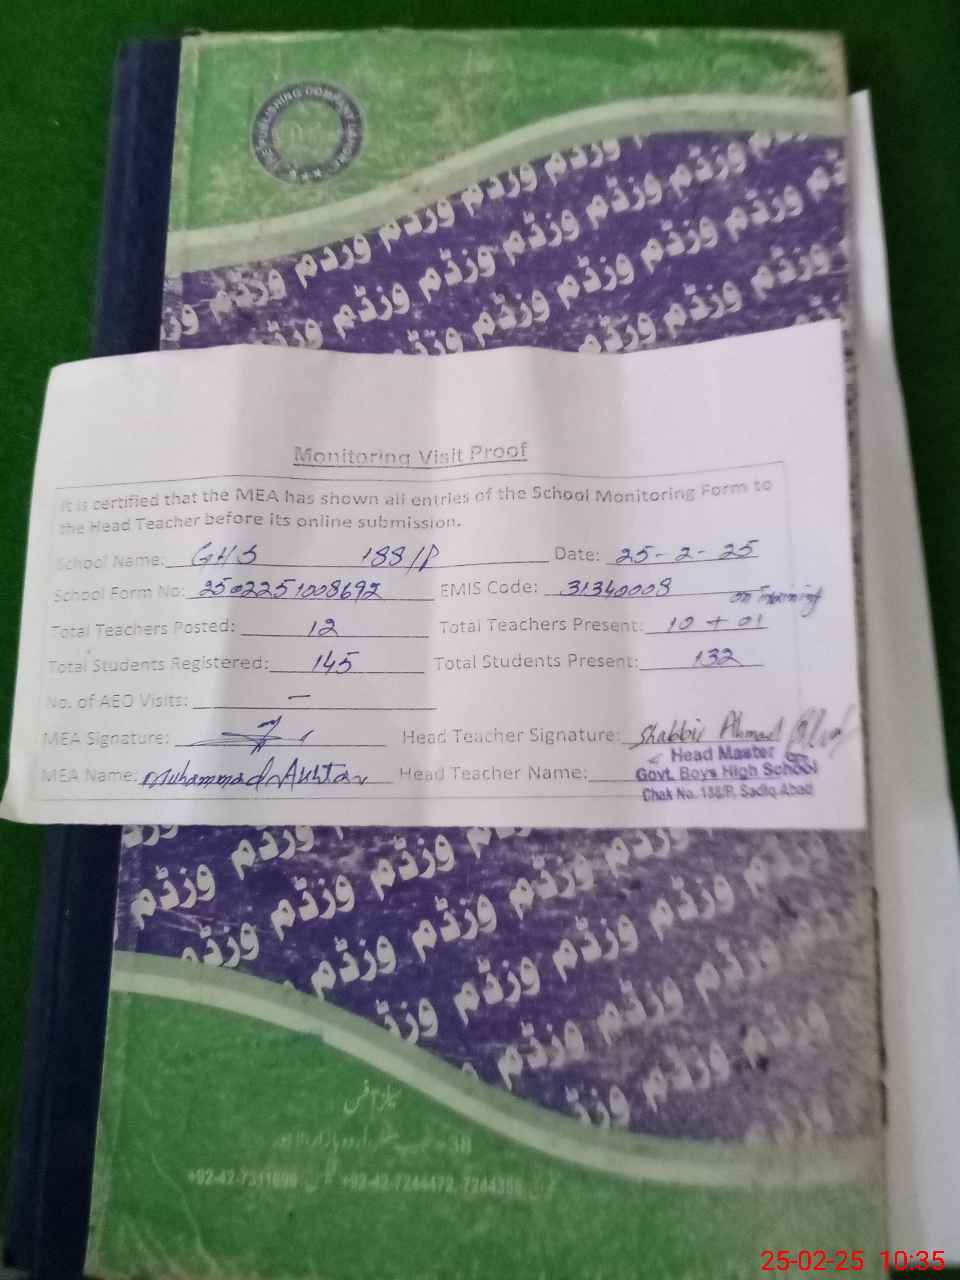 PUBLISHING COMPANY
وزڈم وزڈم وزڈم وزڈم وزڈم
وزڈم وزڈم وزڈم وزڈم وزڈم
وزڈم وزڈم وزڈم وزڈم
Monitoring Visit Proof
It is certified that the MEA has shown all entries of the School Monitoring Form to
the Head Teacher before its online submission.
School Name: GHS 188/P Date: 25-2-25
School Form No: 2502251008692 EMIS Code: 31340008
on Training
Total Teachers Posted: 12 Total Teachers Present: 10 + 01
Total Students Registered: 145 Total Students Present: 132
No. of AEO Visits: -
MEA Signature: Head Teacher Signature: Shabbir Ahmad
Head Master
MEA Name: Muhammad Akhtar Head Teacher Name: Govt. Boys High School
Chak No. 188/P, Sadiq Abad
وزڈم وزڈم وزڈم وزڈم وزڈم
وزڈم وزڈم وزڈم وزڈم وزڈم
وزڈم وزڈم وزڈم وزڈم
سیلز آفس
+92-42-7244472, 7244388
25-02-25 10:35